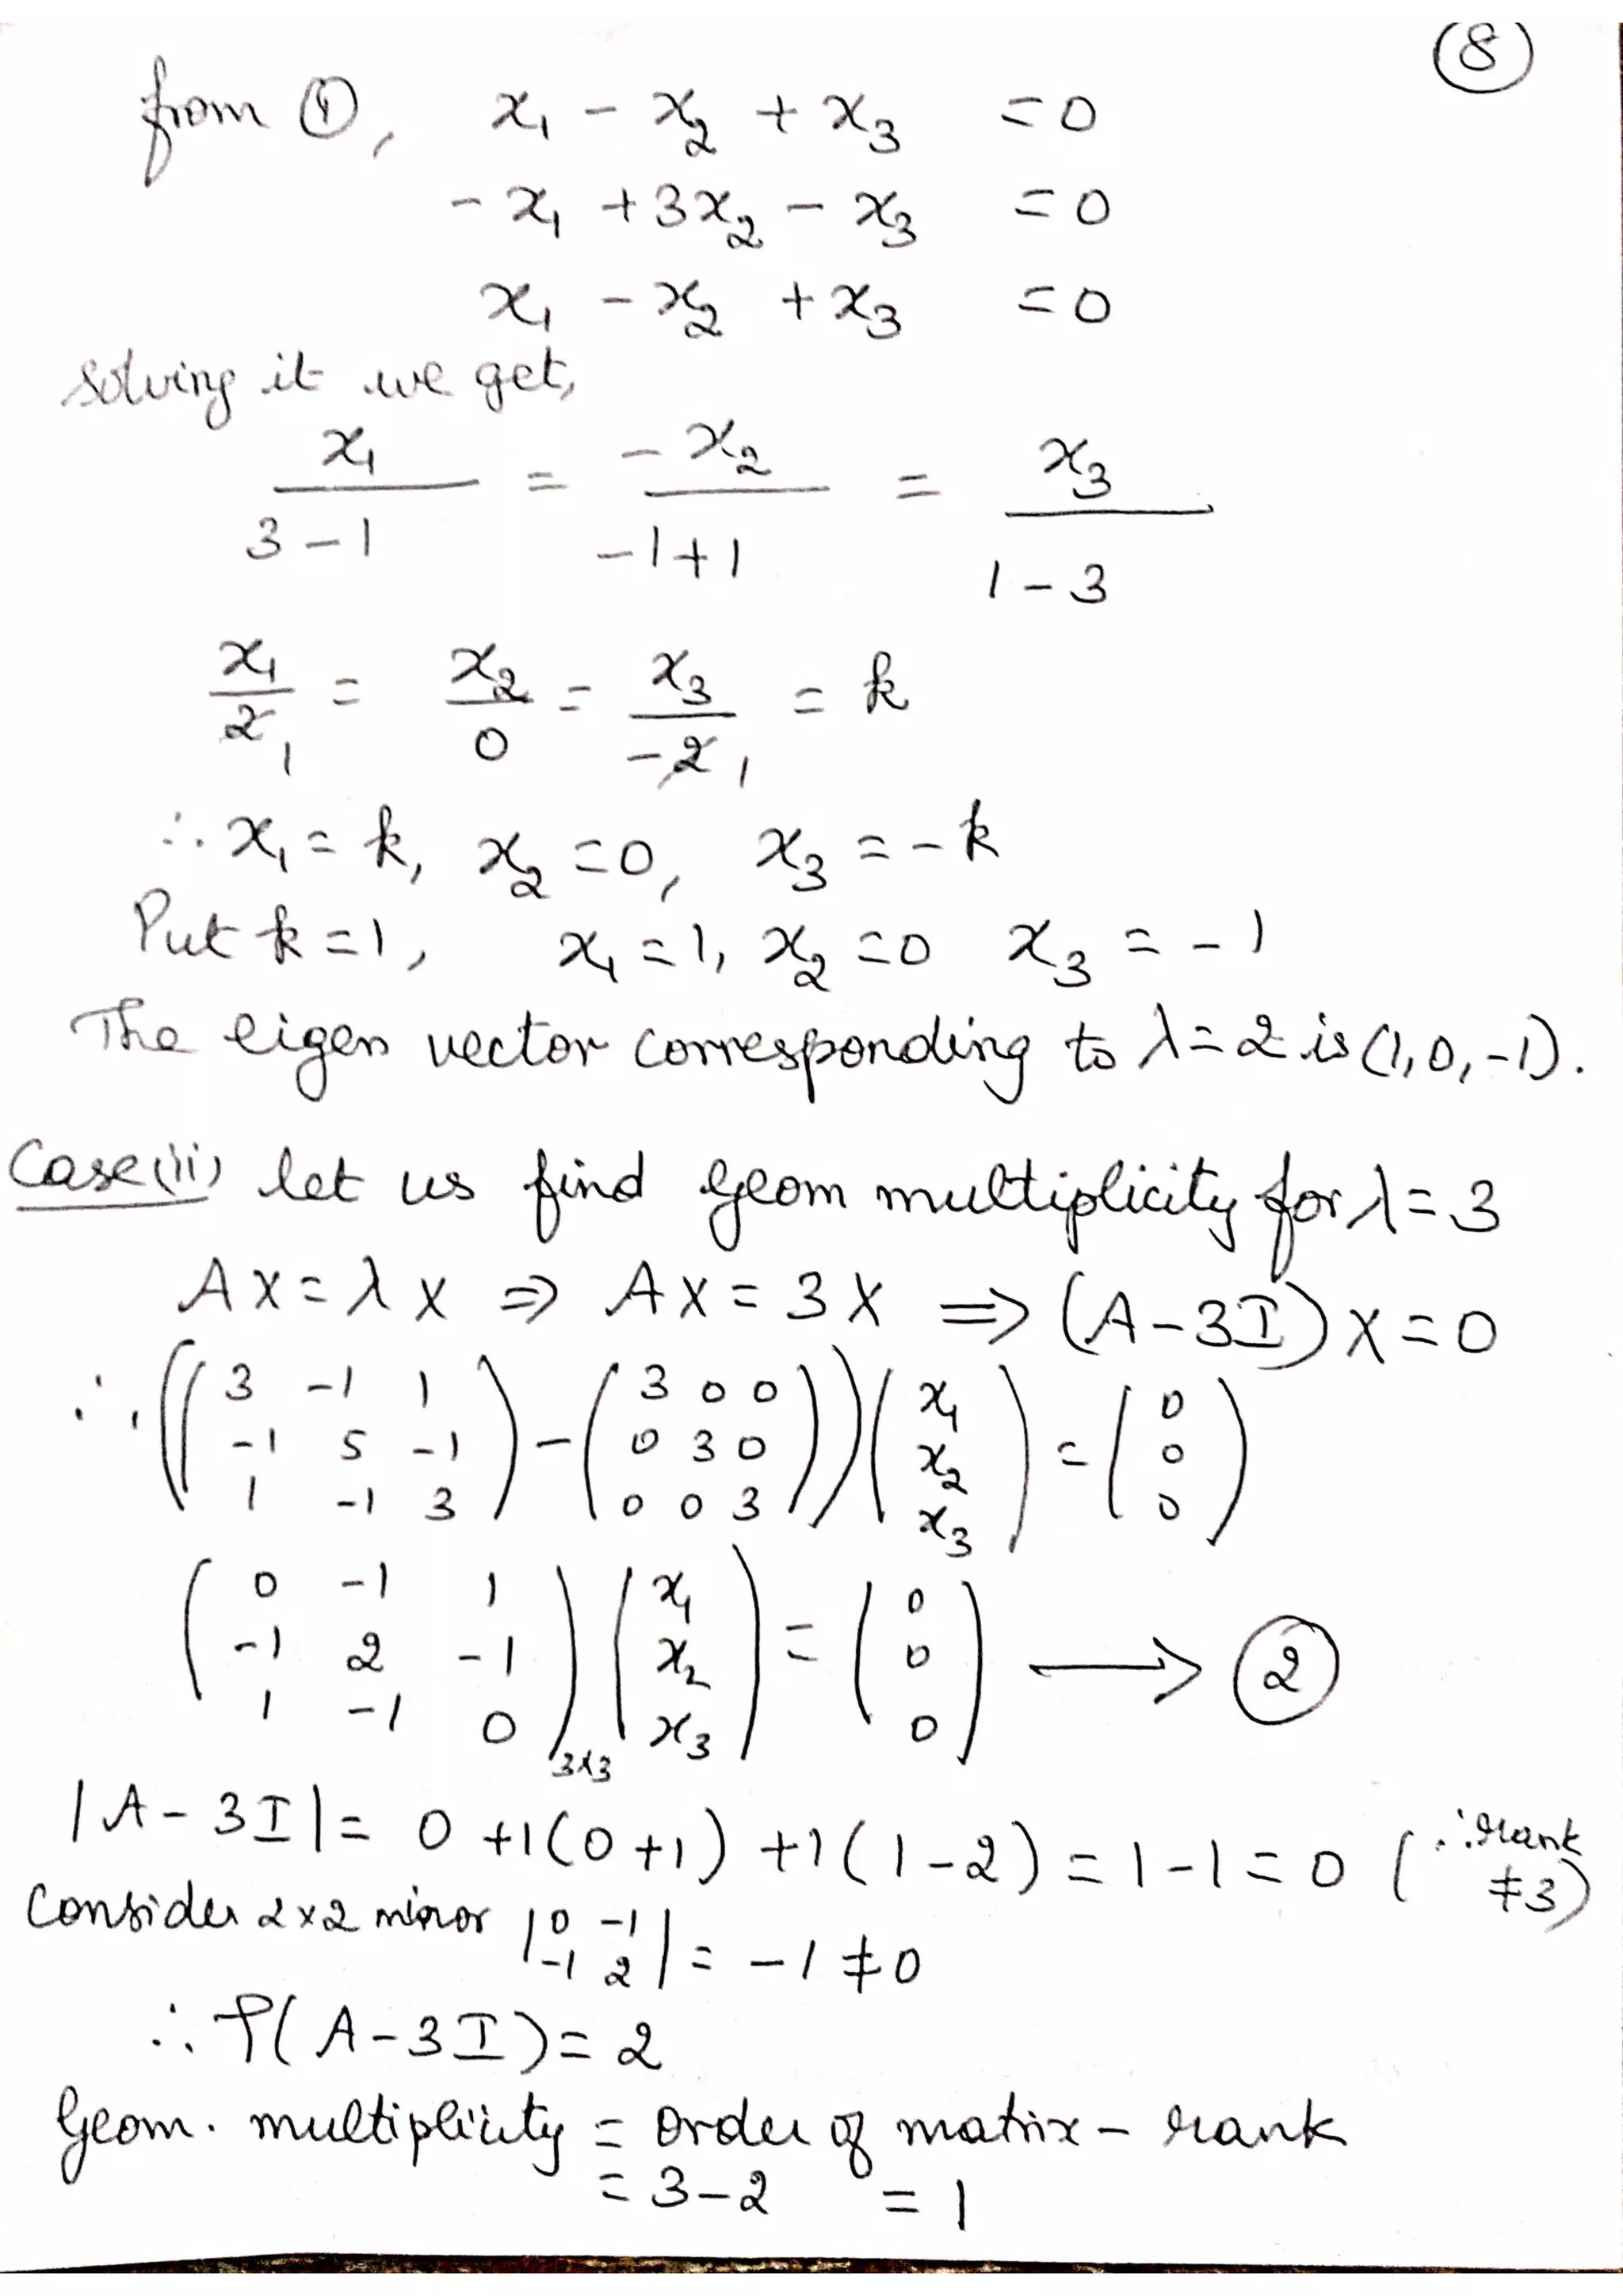 (8)
from ①, x₁ - x₂ + x₃ = 0
- x₁ + 3x₂ - x₃ = 0
x₁ - x₂ + x₃ = 0
solving it we get,
x₁/(3-1) = -x₂/(-1+1) = x₃/(1-3)
x₁/2 1 = x₂/0 = x₃/-2 1 = k
∴ x₁ = k, x₂ = 0, x₃ = -k
Put k = 1, x₁ = 1, x₂ = 0 x₃ = -1
The eigen vector corresponding to λ = 2 is (1, 0, -1).
Case (ii) let us find geom multiplicity for λ = 3
AX = λX ⇒ AX = 3X ⇒ (A - 3I)X = 0
∴ ((3 -1 1; -1 5 -1; 1 -1 3) - (3 0 0; 0 3 0; 0 0 3)) (x₁; x₂; x₃) = (0; 0; 0)
(0 -1 1; -1 2 -1; 1 -1 0)₃ₓ₃ (x₁; x₂; x₃) = (0; 0; 0) → ②
|A - 3I| = 0 + 1(0+1) + 1(1-2) = 1 - 1 = 0 (∴ rank ≠ 3)
Consider 2×2 minor |0 -1; -1 2| = -1 ≠ 0
∴ ρ(A - 3I) = 2
Geom. multiplicity = order of matrix - rank
= 3 - 2 = 1